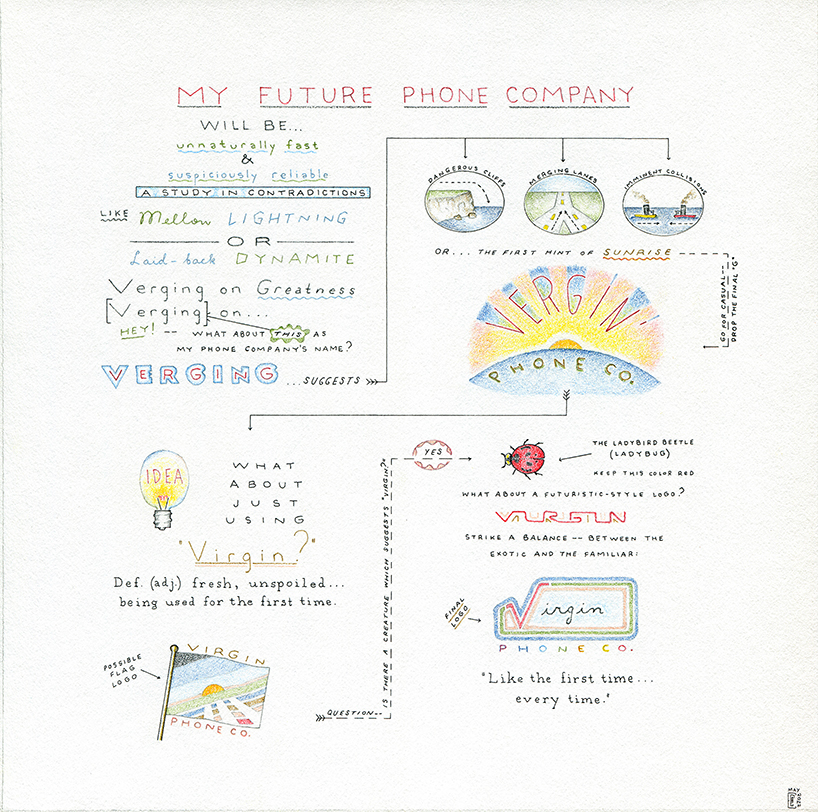 MY FUTURE PHONE COMPANY
WILL BE...
unnaturally fast
&
suspiciously reliable
A STUDY IN CONTRADICTIONS
LIKE Mellow LIGHTNING
OR
Laid-back DYNAMITE
Verging on Greatness
[Verging] on...
HEY! -- WHAT ABOUT THIS AS
MY PHONE COMPANY'S NAME?
VERGING ...SUGGESTS
DANGEROUS CLIFFS
MERGING LANES
IMMINENT COLLISIONS
OR... THE FIRST HINT OF SUNRISE
GO FOR CASUAL--
DROP THE FINAL "G"
VERGIN'
PHONE CO.
IDEA
WHAT
ABOUT
JUST
USING
"Virgin?"
Def. (adj.) fresh, unspoiled...
being used for the first time.
POSSIBLE
FLAG
LOGO
VIRGIN
PHONE CO.
QUESTION--
IS THERE A CREATURE WHICH SUGGESTS "VIRGIN?"
YES
THE LADYBIRD BEETLE
(LADYBUG)
KEEP THIS COLOR RED
WHAT ABOUT A FUTURISTIC-STYLE LOGO?
VIRGIN
STRIKE A BALANCE -- BETWEEN THE
EXOTIC AND THE FAMILIAR:
FINAL
LOGO
Virgin
PHONE CO.
"Like the first time...
every time."
MAY
2022